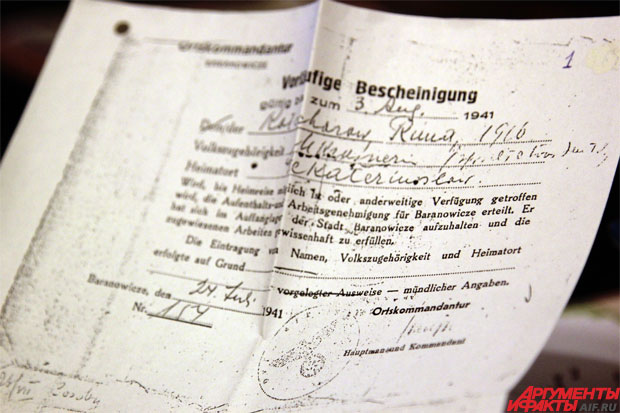 Ortskommandantur
BARANOWICZE
1
Vorläufige Bescheinigung
zum 3 Aug. 1941
der Rima, 1916
Volkszugehörigkeit Ukrainerin
Heimatort Ekaterinoslaw
Wird, bis Heimreise möglich ist oder anderweitige Verfügung getroffen
wird, die Aufenthalts- und Arbeitsgenehmigung für Baranowicze erteilt. Er
hat sich im Auffanglager der Stadt Baranowicze aufzuhalten und die
zugewiesenen Arbeiten gewissenhaft zu erfüllen.
Die Eintragung von Namen, Volkszugehörigkeit und Heimatort
erfolgte auf Grund
vorgelegter Ausweise — mündlicher Angaben.
Baranowicze, den 24 Jul. 1941
Nr. 154
Ortskommandantur
Hauptmann und Kommandant
АРГУМЕНТЫ
И ФАКТЫ AIF.RU